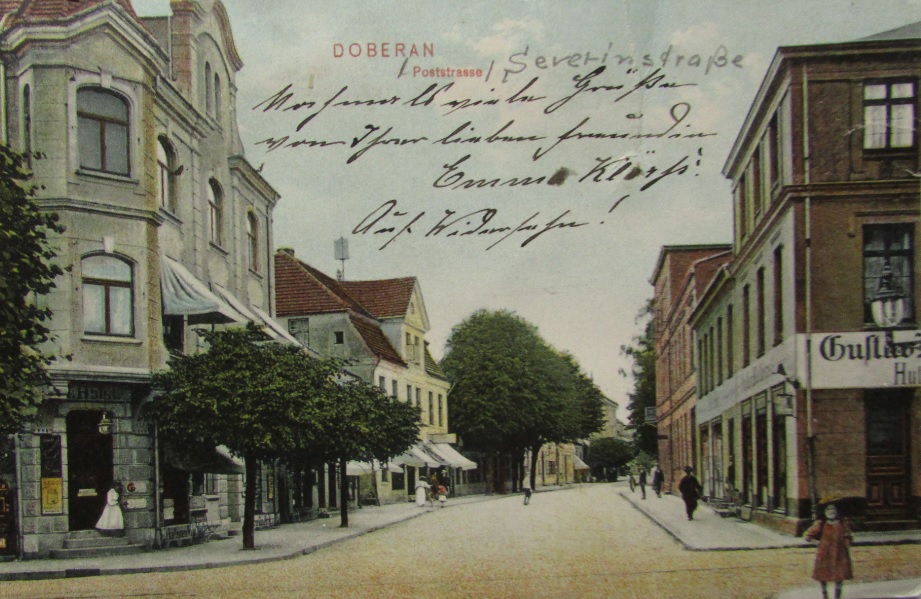 DOBERAN
Poststrasse / Severinstraße
Nochmals viele Grüße
von Ihrer lieben Freundin
Emma
Auf Widersehn!
Gustav
Hu